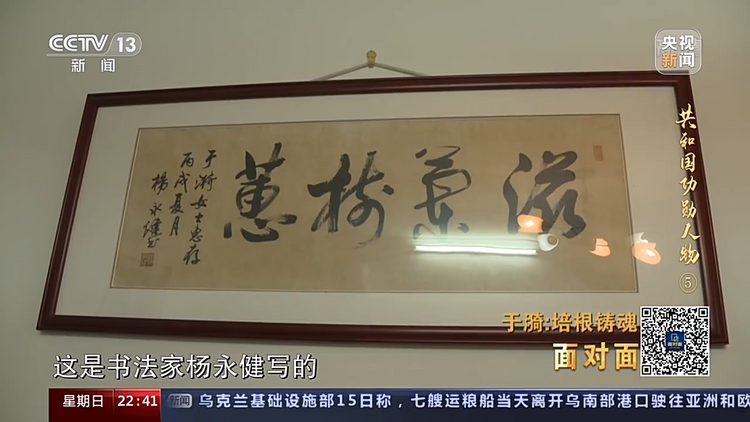 CCTV 13
新闻
央视
新闻
共和国功勋人物⑤
滋兰树蕙
于漪女士惠存
丙戌夏月
杨永健书
于漪:培根铸魂
面对面
这是书法家杨永健写的
星期日 22:41 新闻 乌克兰基础设施部15日称，七艘运粮船当天离开乌南部港口驶往亚洲和欧